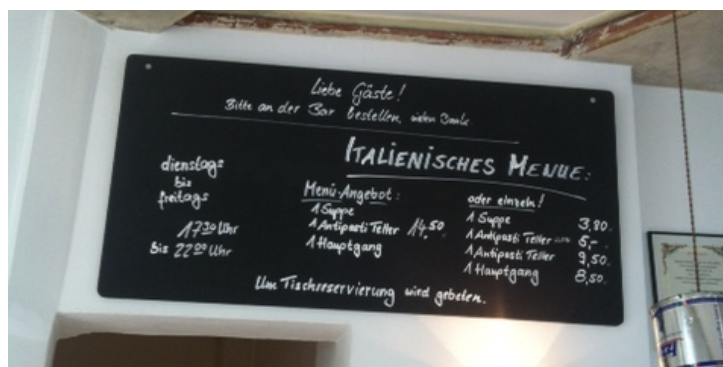 Liebe Gäste!
Bitte an der Bar bestellen, vielen Dank
ITALIENISCHES MENUE:
dienstags
bis
freitags
17³⁰ Uhr
bis 22⁰⁰ Uhr
Menü-Angebot:
1 Suppe
1 Antipasti Teller 14,50
1 Hauptgang
oder einzeln!
1 Suppe 3,80
1 Antipasti Teller 5,-
1 Antipasti Teller 9,50
1 Hauptgang 8,50
Um Tischreservierung wird gebeten.